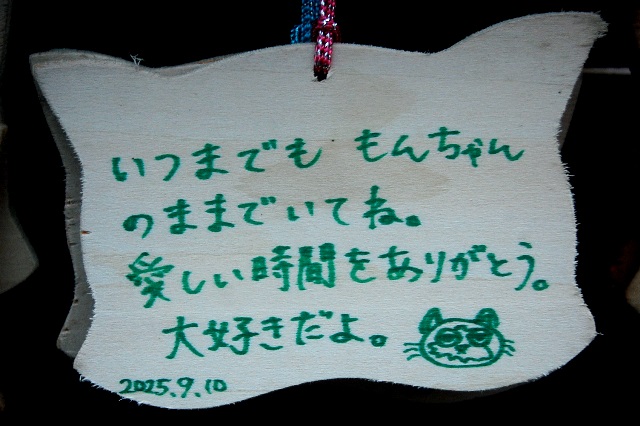 いつまでも もんちゃん
のままでいてね。
愛しい時間をありがとう。
大好きだよ。
2025.9.10